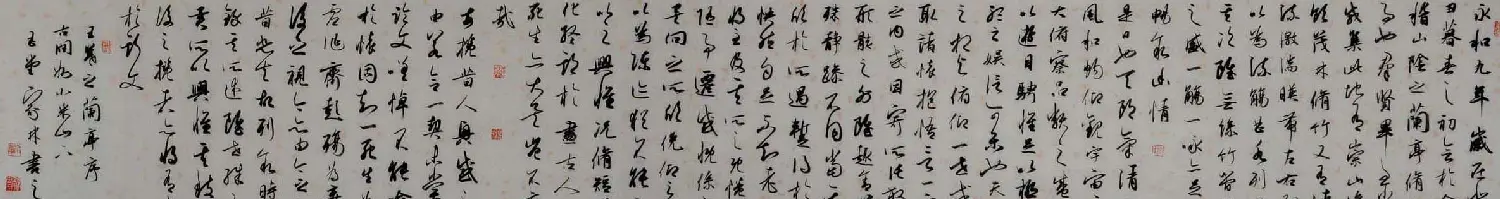 永和九年歲在
丑暮春之初會於會
稽山陰之蘭亭脩
事也羣賢畢至少
咸集此地有崇山峻
領茂林脩竹又有清
流激湍映帶左右
以為流觴曲水列
其次雖無絲竹管
之盛一觴一詠亦足
暢敘幽情
是日也天朗氣清
風和暢仰觀宇宙
大俯察品類之盛
以遊目騁懷足以極
聽之娛信可樂也夫
之相與俯仰一世或
取諸懷抱悟言一
之內或因寄所託放
形骸之外雖趣舍
殊靜躁不同當其
欣於所遇暫得於
快然自足不知老
將至及其所之既惓
隨事遷感慨係
矣向之所欣俛仰之
以為陳迹猶不能
以之興懷況脩短
化終期於盡古人
死生亦大矣豈不
哉
每攬昔人興感之
由若合一契未嘗
臨文嗟悼不能喻
於懷固知一死生為
虛誕齊彭殤為妄
後之視今亦由今之
昔悲夫故列敘時
錄其所述雖世殊
異所以興懷其致
後之攬者亦將有
於斯文
王羲之蘭亭序
小米山人
書之